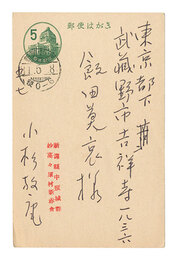 郵便はがき
5
東京都下
武蔵野市吉祥寺一八三六
飯田莫哀様
新潟縣中頸城郡
妙高々原村新赤倉
小杉放庵